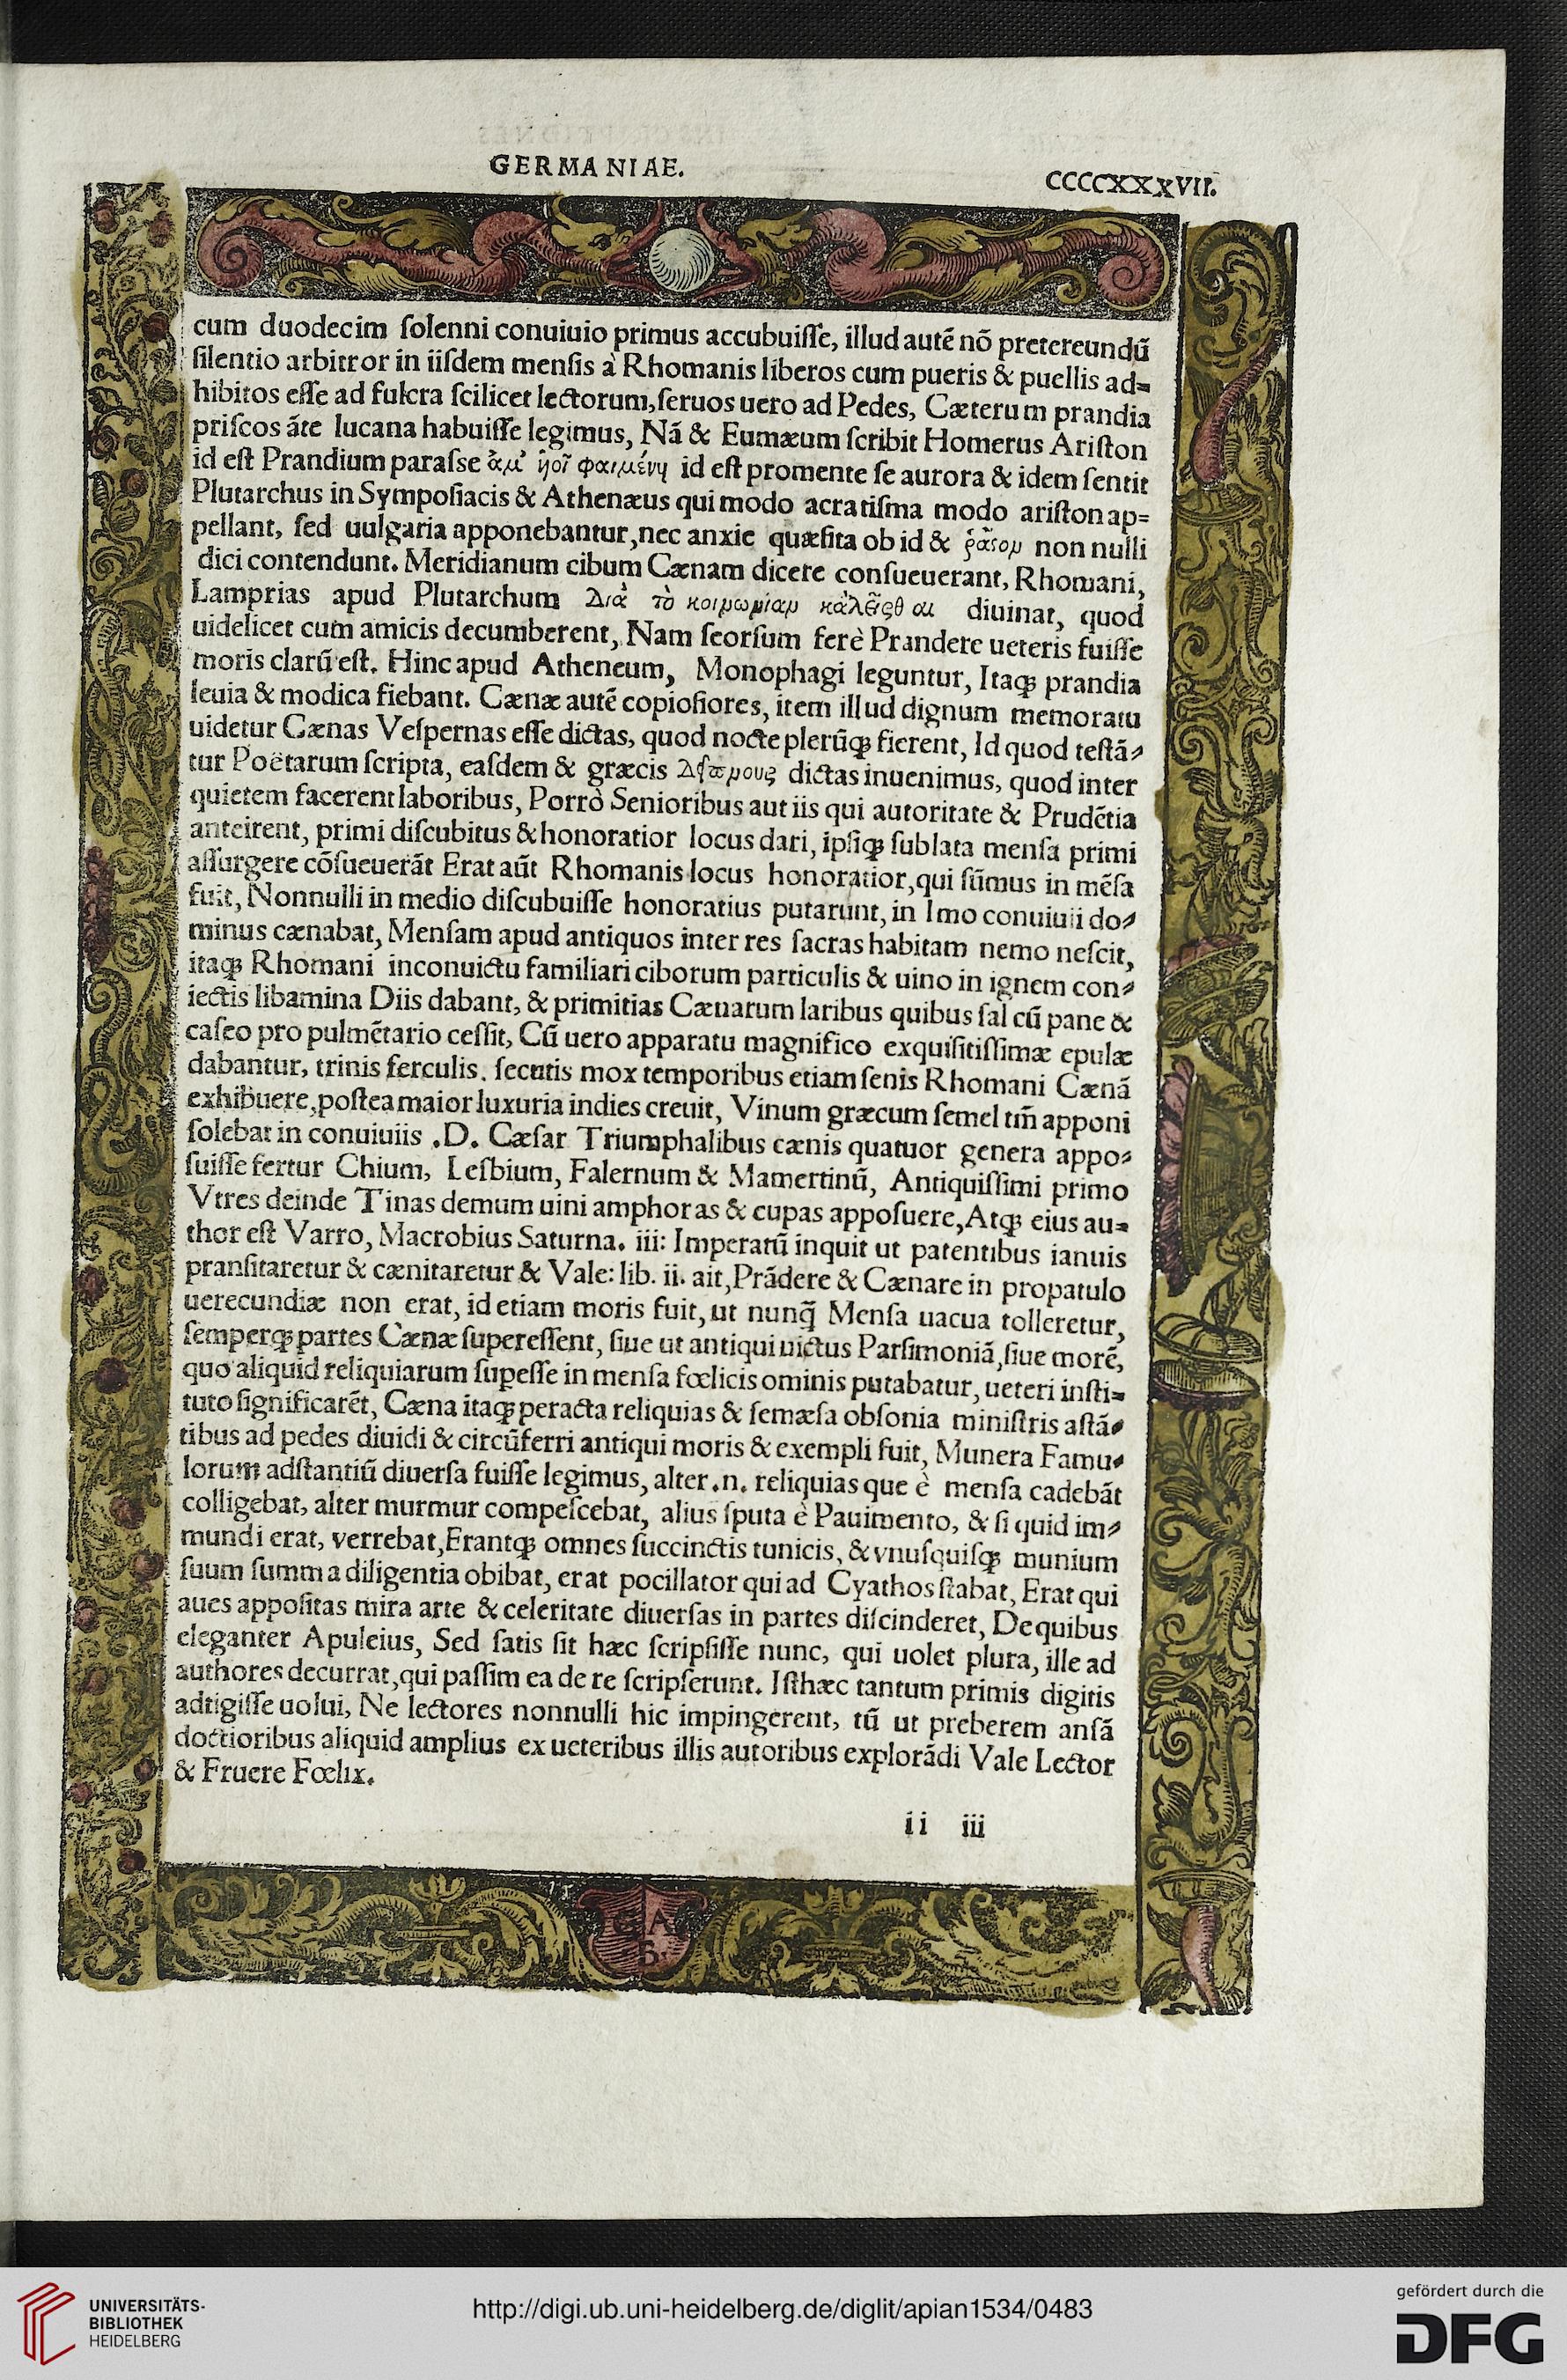 GERMANIAE.
CCCCXXXVII.
cum duodecim ſolenni conuiuio primus accubuiſſe, illud autē nō pretereundū
ſilentio arbitror in iiſdem menſis à Rhomanis liberos cum pueris & puellis ad=
hibitos eſſe ad fulcra ſcilicet lectorum, ſeruos uero ad Pedes, Cæterum prandia
priſcos āte lucana habuiſſe legimus, Nā & Eumæum ſcribit Homerus Ariſton
id eſt Prandium paraſse ἅμ' ἠοῖ φαιμένη id eſt promente ſe aurora & idem ſentit
Plutarchus in Sympoſiacis & Athenæus qui modo acratiſma modo ariſton ap=
pellant, ſed uulgaria apponebantur, nec anxie quæſita ob id & ῥᾶϛομ non nulli
dici contendunt. Meridianum cibum Cænam dicere conſueuerant, Rhomani,
Lamprias apud Plutarchum Διὰ τὸ κοιμωμίαμ καλεῖϛθαι diuinat, quod
uidelicet cum amicis decumberent, Nam ſeorſum ferè Prandere ueteris fuiſſe
moris clarū eſt. Hinc apud Atheneum, Monophagi leguntur, Itaqꝫ prandia
leuia & modica fiebant. Cænæ autē copioſiores, item illud dignum memoratu
uidetur Cænas Veſpernas eſſe dictas, quod nocte plerūqꝫ fierent, Id quod teſtā⸗
tur Poëtarum ſcripta, eaſdem & græcis dictas inuenimus, quod inter
quietem facerent laboribus, Porrò Senioribus aut iis qui autoritate & Prudētia
anteirent, primi diſcubitus & honoratior locus dari, ipſiqꝫ ſublata menſa primi
aſſurgere cōſueuerāt Erat aūt Rhomanis locus honoratior, qui ſūmus in mēſa
fuit, Nonnulli in medio diſcubuiſſe honoratius putarunt, in Imo conuiuii do⸗
minus cænabat, Menſam apud antiquos inter res ſacras habitam nemo neſcit,
itaqꝫ Rhomani inconuictu familiari ciborum particulis & uino in ignem con⸗
iectis libamina Diis dabant, & primitias Cænarum laribus quibus ſal cū pane &
caſeo pro pulmētario ceſſit, Cū uero apparatu magnifico exquiſitiſſimæ epulæ
dabantur, trinis ferculis. ſecutis mox temporibus etiam ſenis Rhomani Cænā
exhibuere, poſtea maior luxuria indies creuit, Vinum græcum ſemel tm̄ apponi
ſolebat in conuiuiis .D. Cæſar Triumphalibus cænis quatuor genera appo⸗
ſuiſſe fertur Chium, Leſbium, Falernum & Mamertinū, Antiquiſſimi primo
Vtres deinde Tinas demum uini amphoras & cupas appoſuere, Atqꝫ eius au=
thor eſt Varro, Macrobius Saturna. iii: Imperatū inquit ut patentibus ianuis
pranſitaretur & cænitaretur & Vale: lib. ii. ait, Prādere & Cænare in propatulo
uerecundiæ non erat, id etiam moris fuit, ut nunq̄ Menſa uacua tolleretur,
ſemperqꝫ partes Cænæ ſupereſſent, ſiue ut antiqui uictus Parſimoniā, ſiue morē,
quo aliquid reliquiarum ſuꝑeſſe in menſa fœlicis ominis putabatur, ueteri inſti=
tuto ſignificarēt, Cæna itaqꝫ peracta reliquias & ſemæſa obſonia miniſtris aſtā⸗
tibus ad pedes diuidi & circūferri antiqui moris & exempli fuit, Munera Famu⸗
lorum adſtantiū diuerſa fuiſſe legimus, alter .n. reliquias que è menſa cadebāt
colligebat, alter murmur compeſcebat, alius ſputa è Pauimento, & ſi quid im⸗
mundi erat, verrebat, Erantqꝫ omnes ſuccinctis tunicis, & vnuſquiſqꝫ munium
ſuum ſumma diligentia obibat, erat pocillator qui ad Cyathos ſtabat, Erat qui
aues appoſitas mira arte & celeritate diuerſas in partes diſcinderet, De quibus
eleganter Apuleius, Sed ſatis ſit hæc ſcripſiſſe nunc, qui uolet plura, ille ad
authores decurrat, qui paſſim ea de re ſcripſerunt. Iſthæc tantum primis digitis
adtigiſſe uolui, Ne lectores nonnulli hic impingerent, tū ut preberem anſā
doctioribus aliquid amplius ex ueteribus illis autoribus explorādi Vale Lector
& Fruere Fœlix.
ii iii
G A
B.
UNIVERSITÄTS-
BIBLIOTHEK
HEIDELBERG
http://digi.ub.uni-heidelberg.de/diglit/apian1534/0483
gefördert durch die
DFG